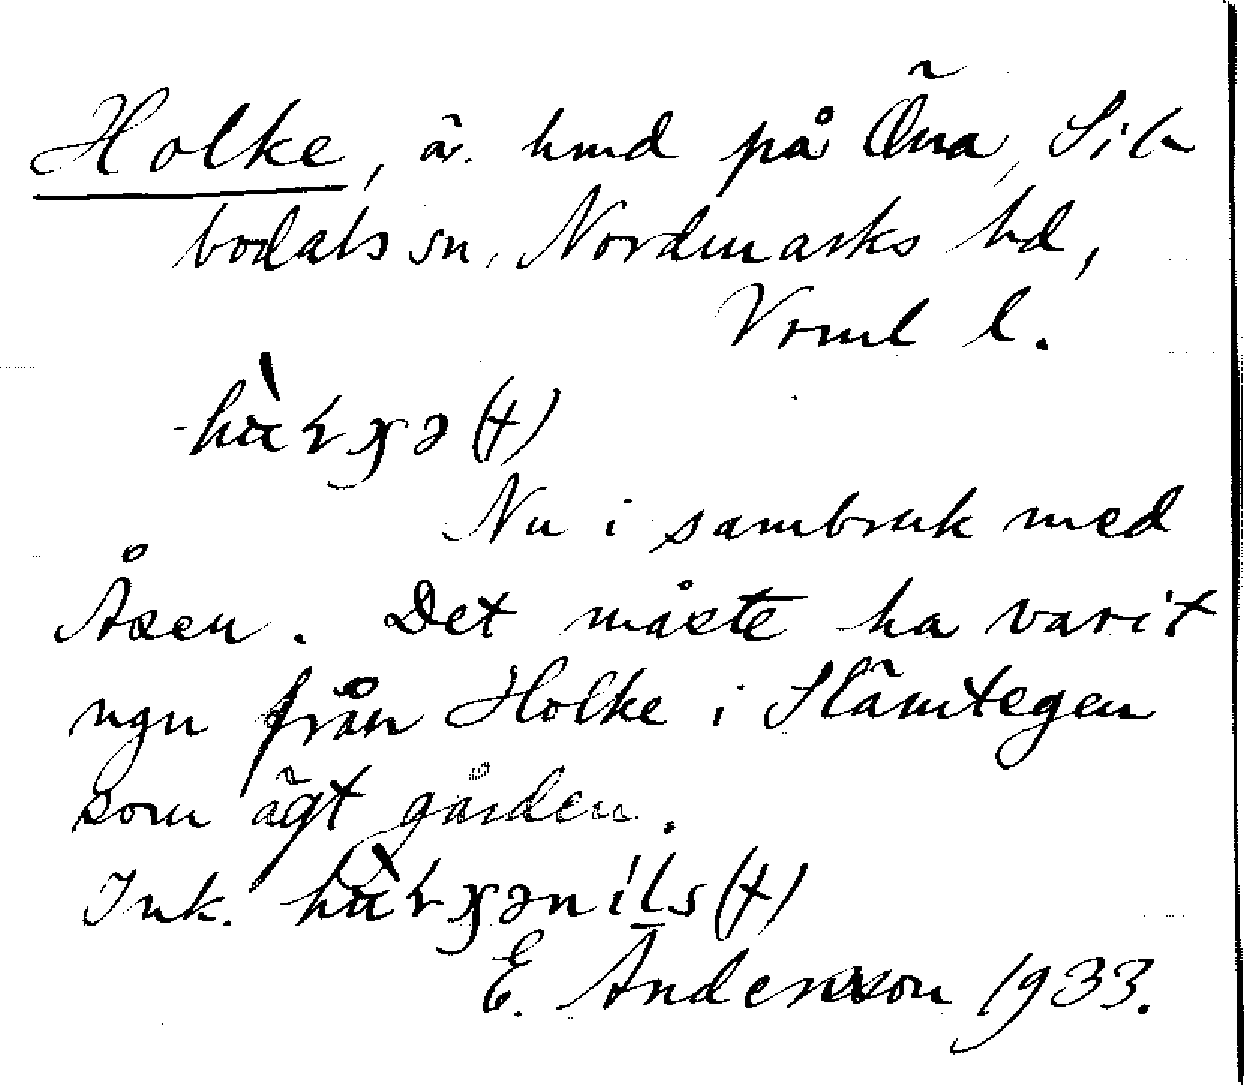 Holke, ä. hmd på Õna, Sil-
bodals sn, Nordmarks hd,
Vrml l.
Nu i sambruk med
Åsen. Det måste ha varit
ngn från Holke i Slämtegen
som ägt gården.
Ink.
E. Andersson 1933.